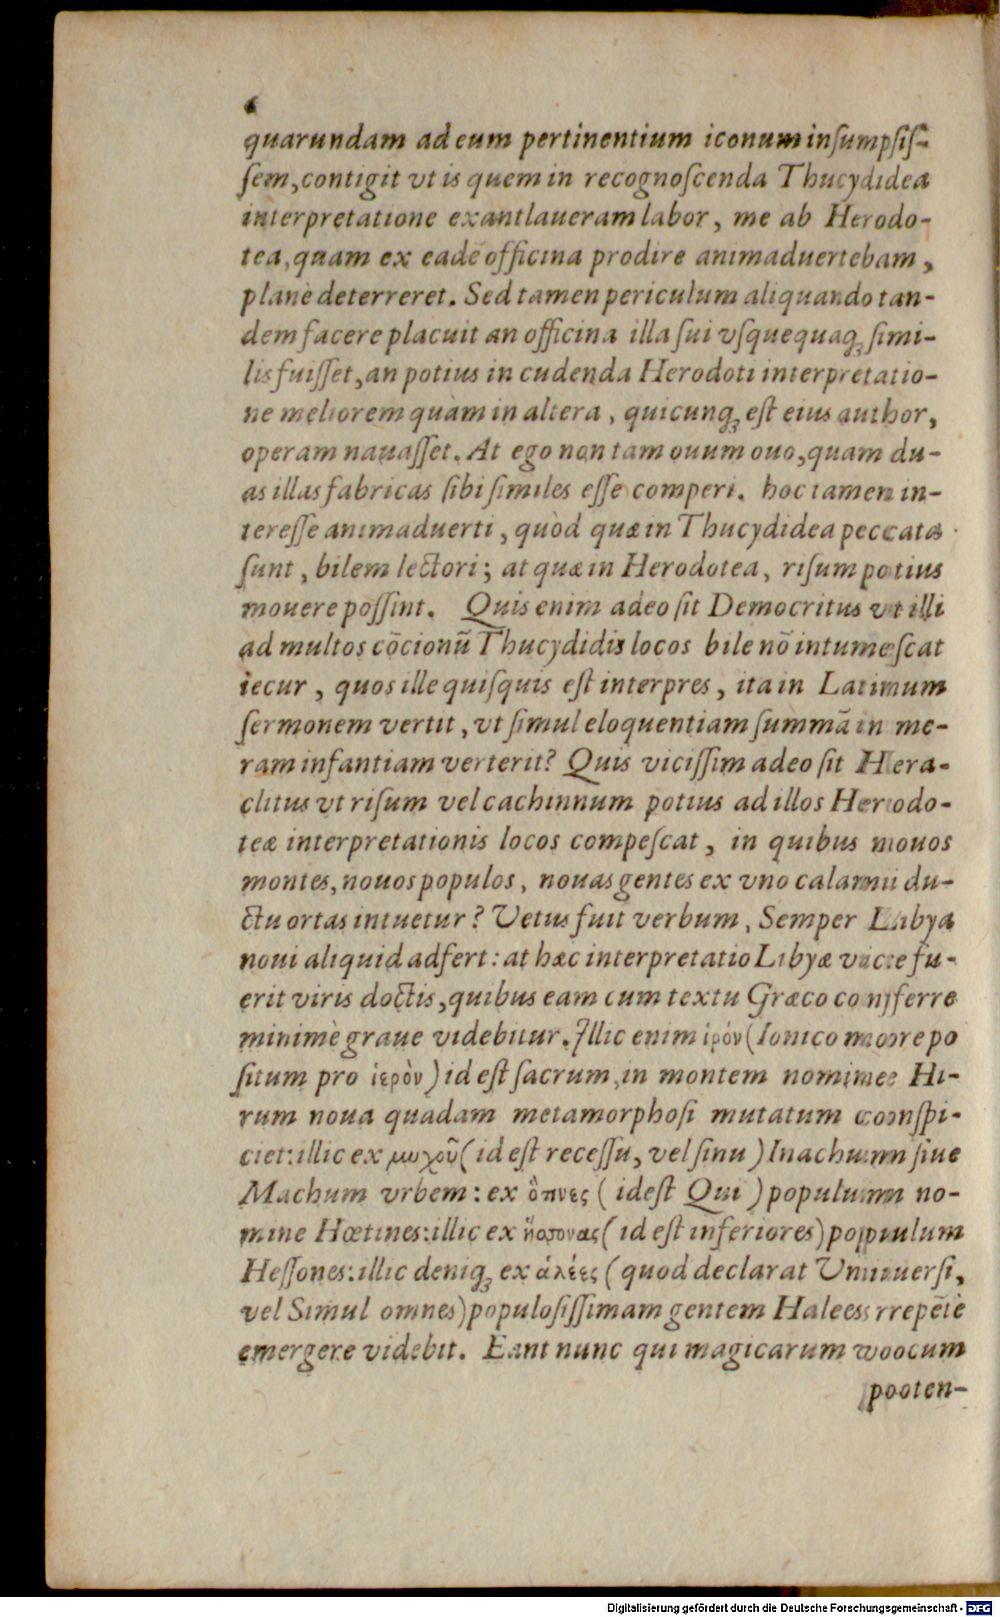 6
quarundam ad eum pertinentium iconum inſumpſiſ-
ſem, contigit vt is quem in recognoſcenda Thucydidea
interpretatione exantlaueram labor, me ab Herodo-
tea, quam ex eadē officina prodire animaduertebam,
planè deterreret. Sed tamen periculum aliquando tan-
dem facere placuit an officina illa ſui vſquequaqꝫ ſimi-
lis fuiſſet, an potius in cudenda Herodoti interpretatio-
ne meliorem quàm in altera, quicunqꝫ eſt eius author,
operam nauaſſet. At ego non tam ouum ouo, quam du-
as illas fabricas ſibi ſimiles eſſe comperi. hoc tamen in-
tereſſe animaduerti, quòd quæ in Thucydidea peccata
ſunt, bilem lectori; at quæ in Herodotea, riſum potius
mouere poſſint. Quis enim adeo ſit Democritus vt illi
ad multos cōcionū Thucydidis locos bile nō intumeſcat
iecur, quos ille quiſquis eſt interpres, ita in Latinum
ſermonem vertit, vt ſimul eloquentiam ſummā in me-
ram infantiam verterit? Quis viciſſim adeo ſit Hera-
clitus vt riſum vel cachinnum potius ad illos Herodo-
teæ interpretationis locos compeſcat, in quibus nouos
montes, nouos populos, nouas gentes ex vno calami du-
ctu ortas intuetur? Vetus fuit verbum, Semper Libya
noui aliquid adfert: at hæc interpretatio Libyæ vice fu-
erit viris doctis, quibus eam cum textu Græco conferre
minimè graue videbitur. Illic enim ἱρόν (Ionico more po
ſitum pro ἱερὸν) id eſt ſacrum, in montem nomine Hi-
rum noua quadam metamorphoſi mutatum conſpi-
ciet: illic ex μυχοῦ (id eſt receſſu, vel ſinu) Inachum ſiue
Machum vrbem: ex ὅτινες (ideſt Qui) populum no-
mine Hœtines: illic ex ἥσσονας (id eſt inferiores) populum
Heſſones: illic deniqꝫ ex ἁλέες (quod declarat Vniuerſi,
vel Simul omnes) populoſiſſimam gentem Halees repētè
emergere videbit. Eant nunc qui magicarum vocum
poten-
Digitalisierung gefördert durch die Deutsche Forschungsgemeinschaft - DFG